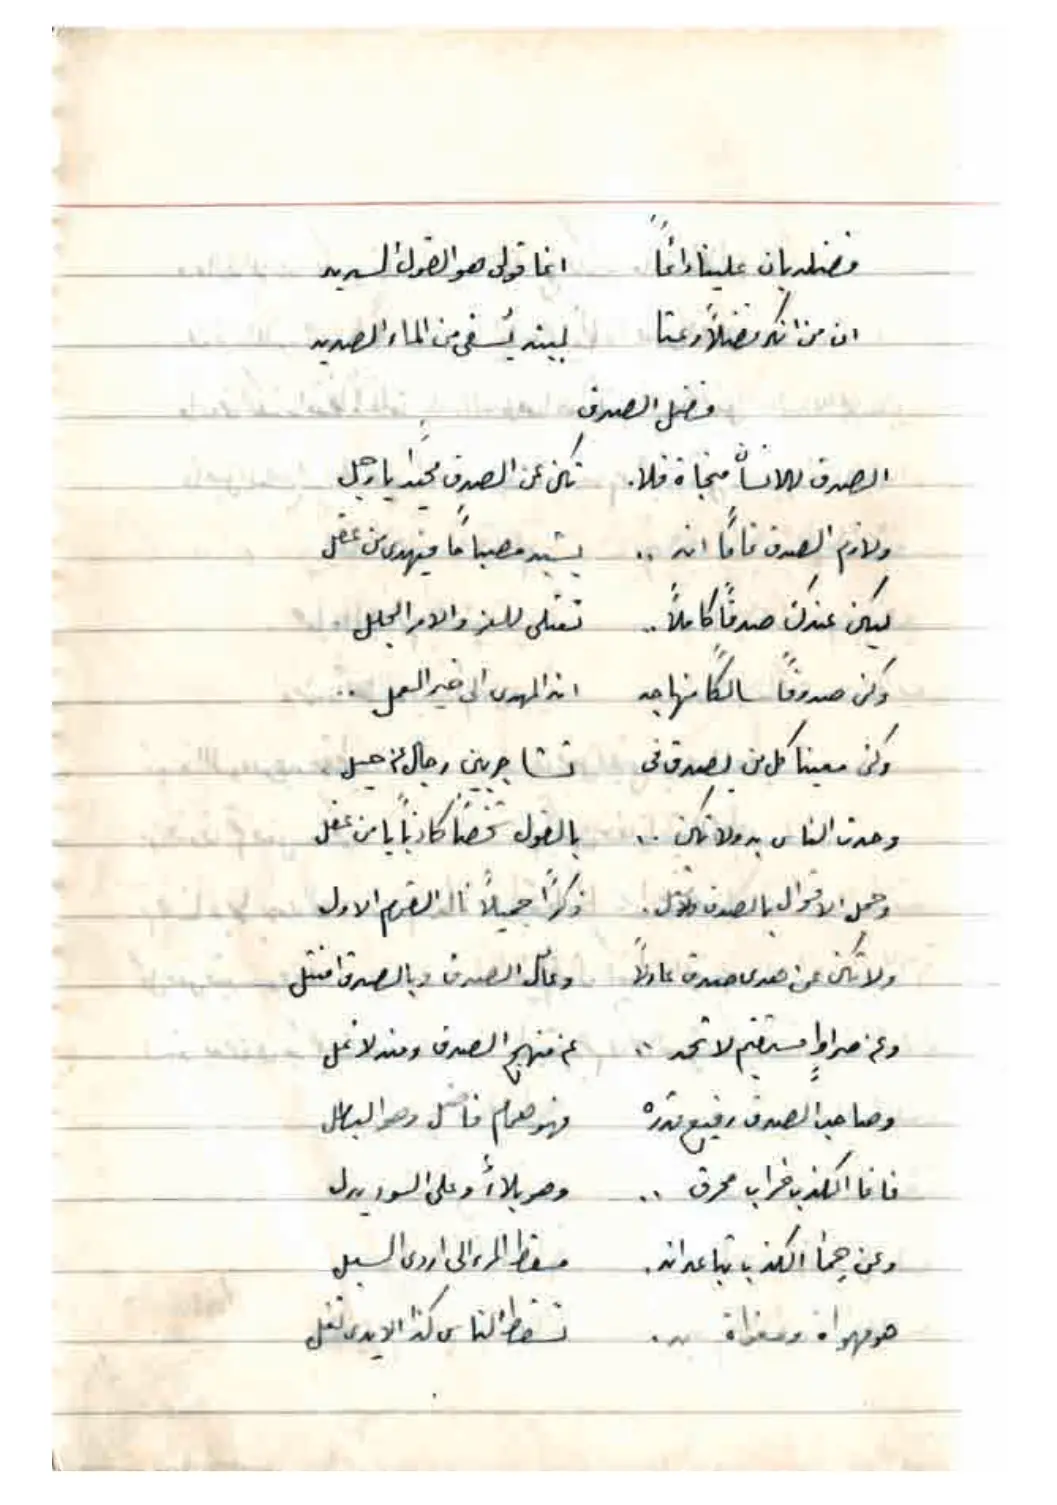 فضله بان علينا دائماً انما قولي هو القول السديد
ان من انكر فضلاً وعتا لبيته يُسقى من الماء الصديد
فضل الصدق
الصدق للانسان منجاة فلا. تكن عن الصدق محيداً يا رجل
ولازم الصدق تماماً انه .. يشبه مصباحاً فيهدي من عقل
ليكن عندك صدقاً كاملاً .. تعتلي للعز والامر الجلل
وكن صدوقاً سالكاً منهاجه انه المهدى الى خير العمل ..
وكن معيناً كل من يصدق في رجال عن
وحدث الناس به ولا تكن .. بالقول شخصاً كاذباً يا من عقل
وجمل الاقوال بالصدق . ذكراً جميلاً ناله القوم الاول
ولا تكن عن هدى صدق عادلاً الصدق وبالصدق
وعن صراطٍ مستقيم لا تحد .. عن منهج الصدق ومنه لا تمل
وصاحب الصدق رفيع قدره فهو همام فاضل وهو البطل
فانما الكذب خراب محرق .. وهو بلاءٌ وعلى السوء يدل
وعن الكذب تباعد انه . مسقط المرء الى اردى السبل
هو مهواة به . تسقط الناس كذا الايدي تغل